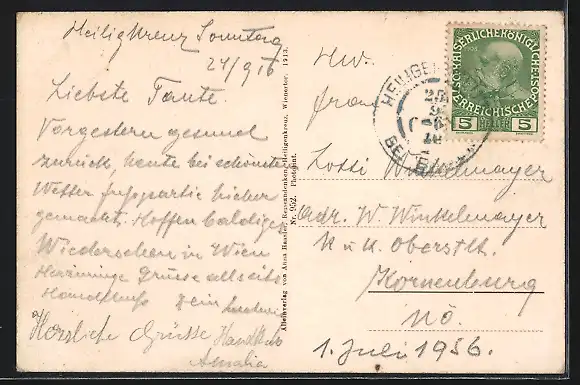 Heiligkreuz Sonntag
24/9 16
Liebste Tante.
Vorgestern gesund
zurück, heute bei schönstem
Wetter Fusspartie hieher
gemacht. Hoffen baldiges
Wiedersehen in Wien
Herzinnige Grüsse allseits
Handkuss Dein Ludwig
Herzliche Grüsse Handkuss
Amalia
Alleinverlag von Anna Reiseandenken, Heiligenkreuz, Wienertor. 1913.
Nr. 952. Photoint.
KAISERLICHE KÖNIGLICHE
ÖSTERREICHISCHE
5 HELLER 5
HEILIGEN
25
BEI
Frau
Lotti Winkelmayer
Adr. W. Winkelmayer
K u K. Oberstlt.
Korneuburg
NÖ.
1. Juli 1956.